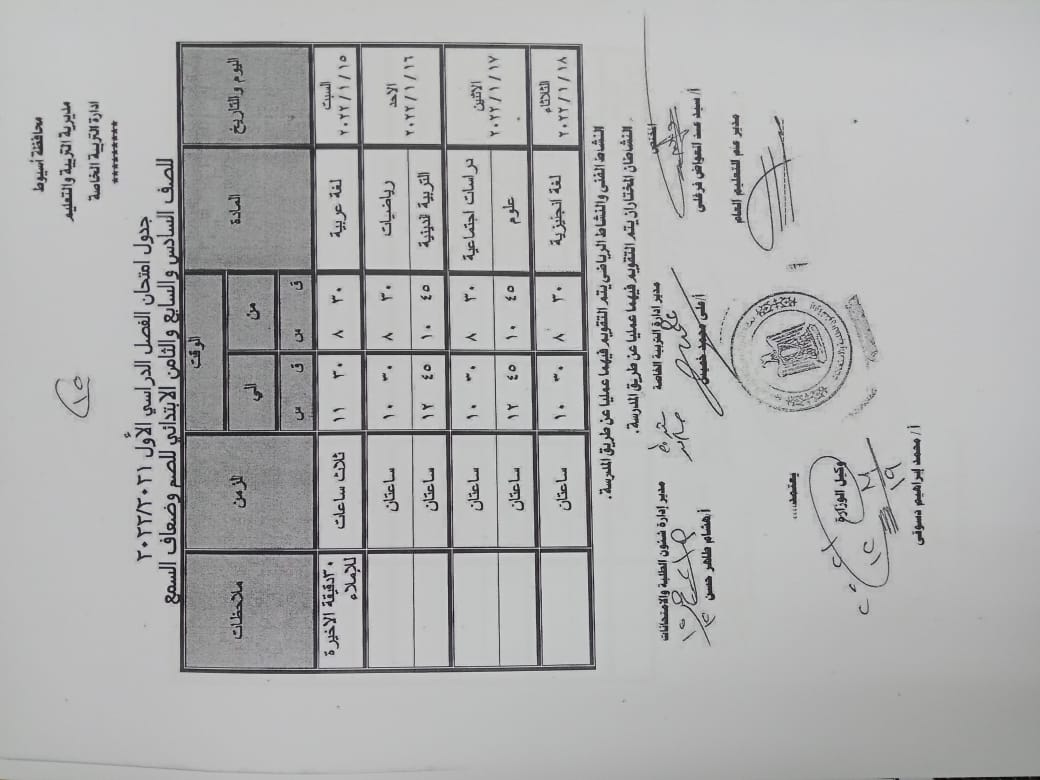 محافظة أسيوط
مديرية التربية والتعليم
ادارة التربية الخاصة
*********
١٥
جدول امتحان الفصل الدراسي الأول ٢٠٢٢/٢٠٢١
للصف السادس والسابع والثامن الابتدائي للصم وضعاف السمع
اليوم والتاريخ المادة الوقت الزمن ملاحظات
من الي
ق س ق س
السبت ٢٠٢٢/١/١٥ لغة عربية ٣٠ ٨ ٣٠ ١١ ثلاث ساعات ٣٠دقيقة الاخيرة للإملاء
الاحد ٢٠٢٢/١/١٦ رياضيات ٣٠ ٨ ٣٠ ١٠ ساعتان
التربية الدينية ٤٥ ١٠ ٤٥ ١٢ ساعتان
الاثنين ٢٠٢٢/١/١٧ دراسات اجتماعية ٣٠ ٨ ٣٠ ١٠ ساعتان
علوم ٤٥ ١٠ ٤٥ ١٢ ساعتان
الثلاثاء ٢٠٢٢/١/١٨ لغة انجليزية ٣٠ ٨ ٣٠ ١٠ ساعتان
النشاط الفنى والنشاط الرياضى يتم التقويم فيهما عمليا عن طريق المدرسة.
النشاطان المختاران يتم التقويم فيهما عمليا عن طريق المدرسة.
المختص مدير ادارة التربية الخاصة مدير إدارة شئون الطلبة والامتحانات
أ/ سيد عبد العواض فرغلى أ/على محمد خميس أ/هشام طاهر حسن
مدير عام التعليم العام
يعتمد....
وكيل الوزارة
أ/ محمد إبراهيم دسوقى